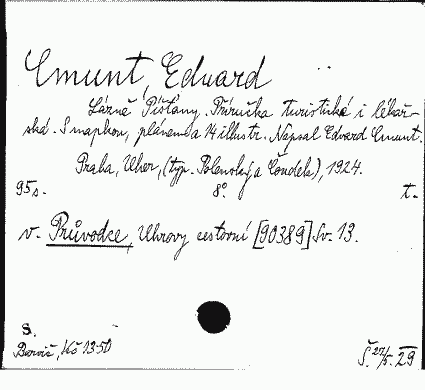 Cmunt, Eduard
Lázně Píšťany. Příručka turistická i lékař-
ská. S mapkou, plánem a 14 illustr. Napsal Edvard Cmunt.
Praha, Uher, (typ. Polenský a Čondela), 1924.
95 s. 8°. t.
v. Průvodce, Uhrovy cestovní [90389] Sv. 13.
S.
Kč 13·50 Š. 27/5. 29